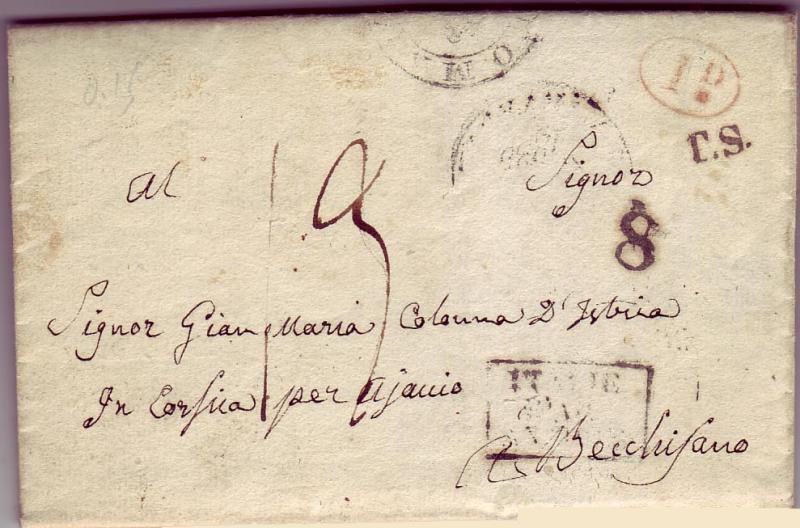 0.15
1 D.
T.S.
Al Signor
19
8
Signor Gian Maria Colonna D'Istria
In Corsica per Ajacio
ITALIE
a Becchisano